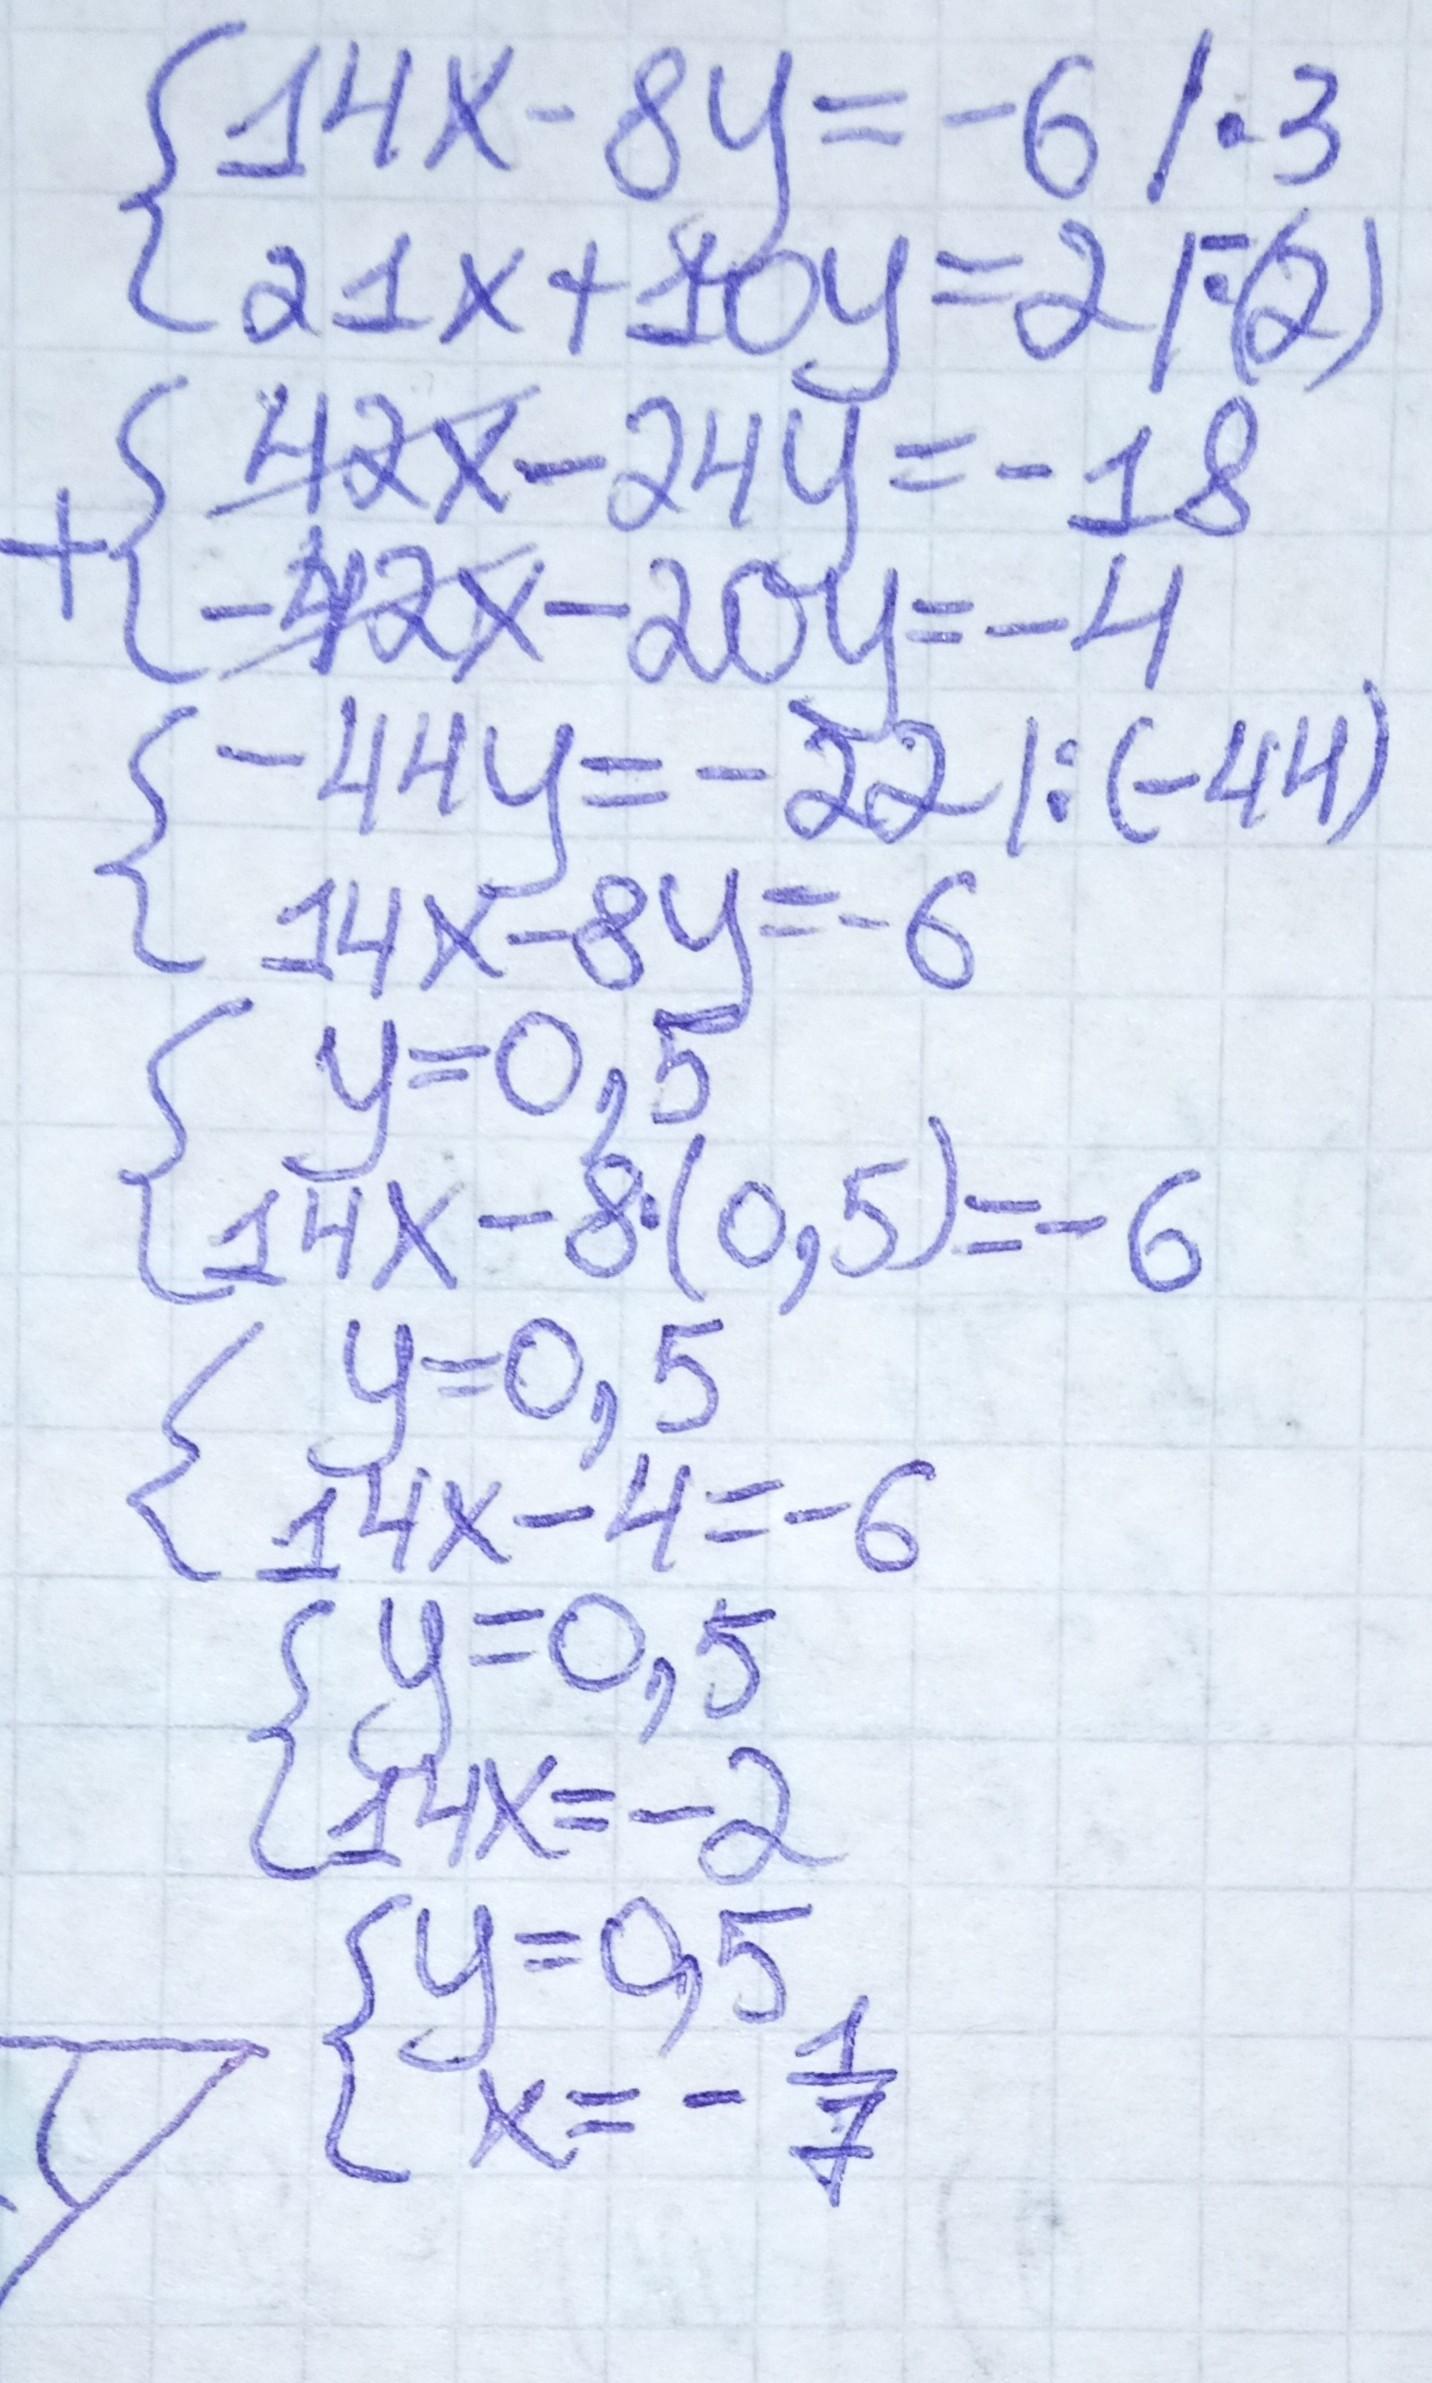 14x - 8y = -6 | · 3
21x + 10y = 2 | · (-2)
42x - 24y = -18
+
-42x - 20y = -4
-44y = -22 | : (-44)
14x - 8y = -6
y = 0,5
14x - 8 · (0,5) = -6
y = 0,5
14x - 4 = -6
y = 0,5
14x = -2
y = 0,5
x = - 1/7